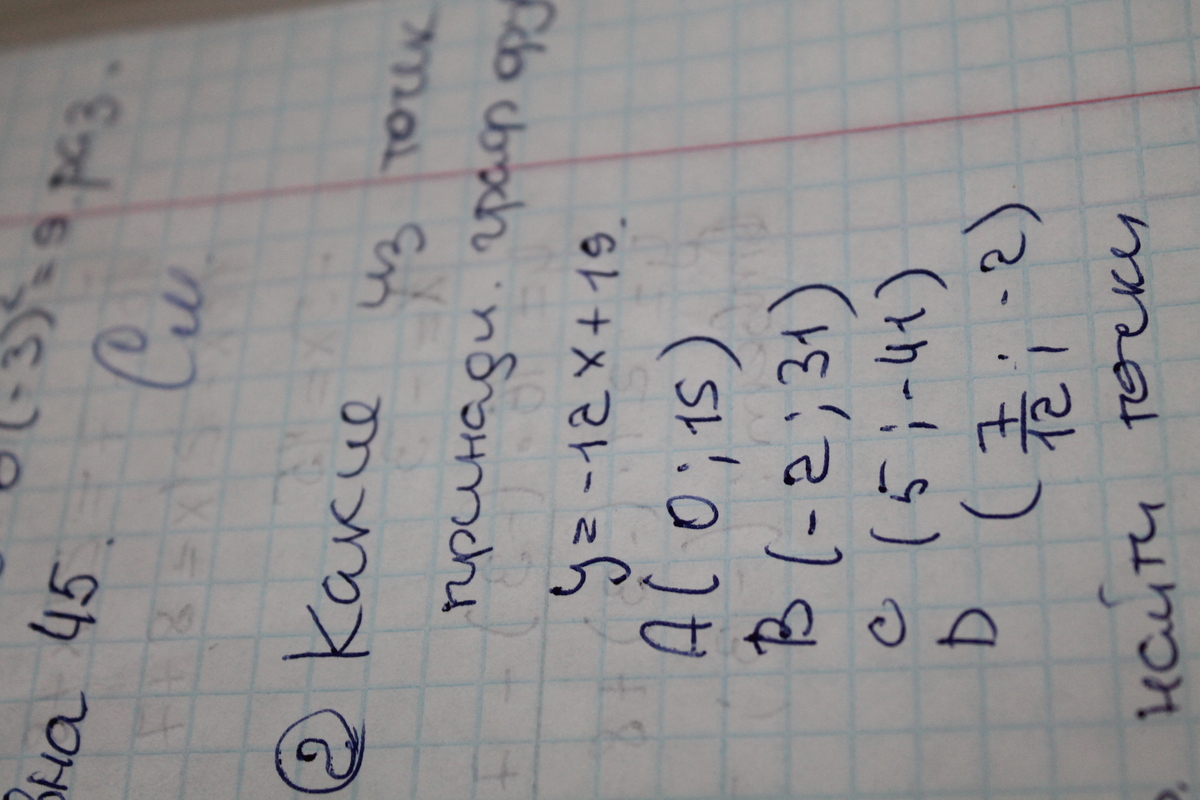 (-3)² = 9 раз.
вна 45.
Си
② Какие из точек
принадл. граф фу
y = -12x + 19.
A( 0 ; 15)
B (-2 ; 31)
C (5 ; -41)
D ( 7/12 ; -2)
найти точки